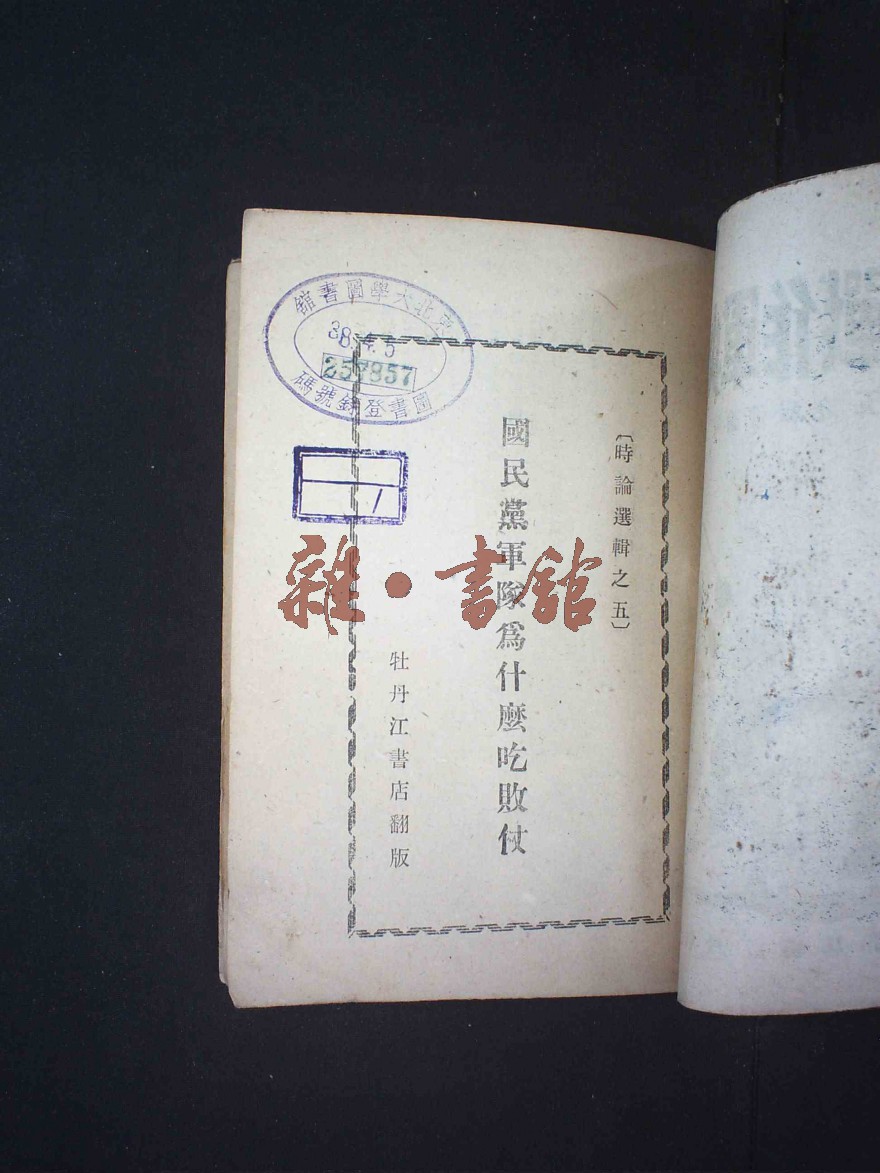 〔時論選輯之五〕
國民黨軍隊爲什麽吃敗仗
牡丹江書店翻版
東北大學圖書館
38.4.5
257857
圖書登錄號碼
1
雜·書館